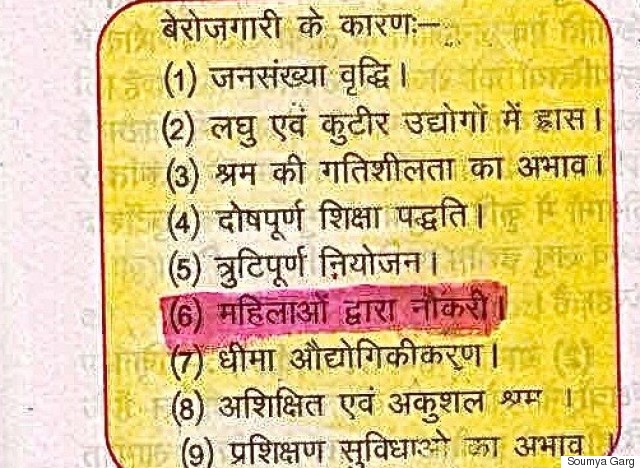 बेरोजगारी के कारणः–
(1) जनसंख्या वृद्धि।
(2) लघु एवं कुटीर उद्योगों में ह्रास।
(3) श्रम की गतिशीलता का अभाव।
(4) दोषपूर्ण शिक्षा पद्धति।
(5) त्रुटिपूर्ण नियोजन।
(6) महिलाओं द्वारा नौकरी।
(7) धीमा औद्योगिकीकरण।
(8) अशिक्षित एवं अकुशल श्रम ।
(9) प्रशिक्षण सुविधाओ का अभाव ।
Soumya Garg